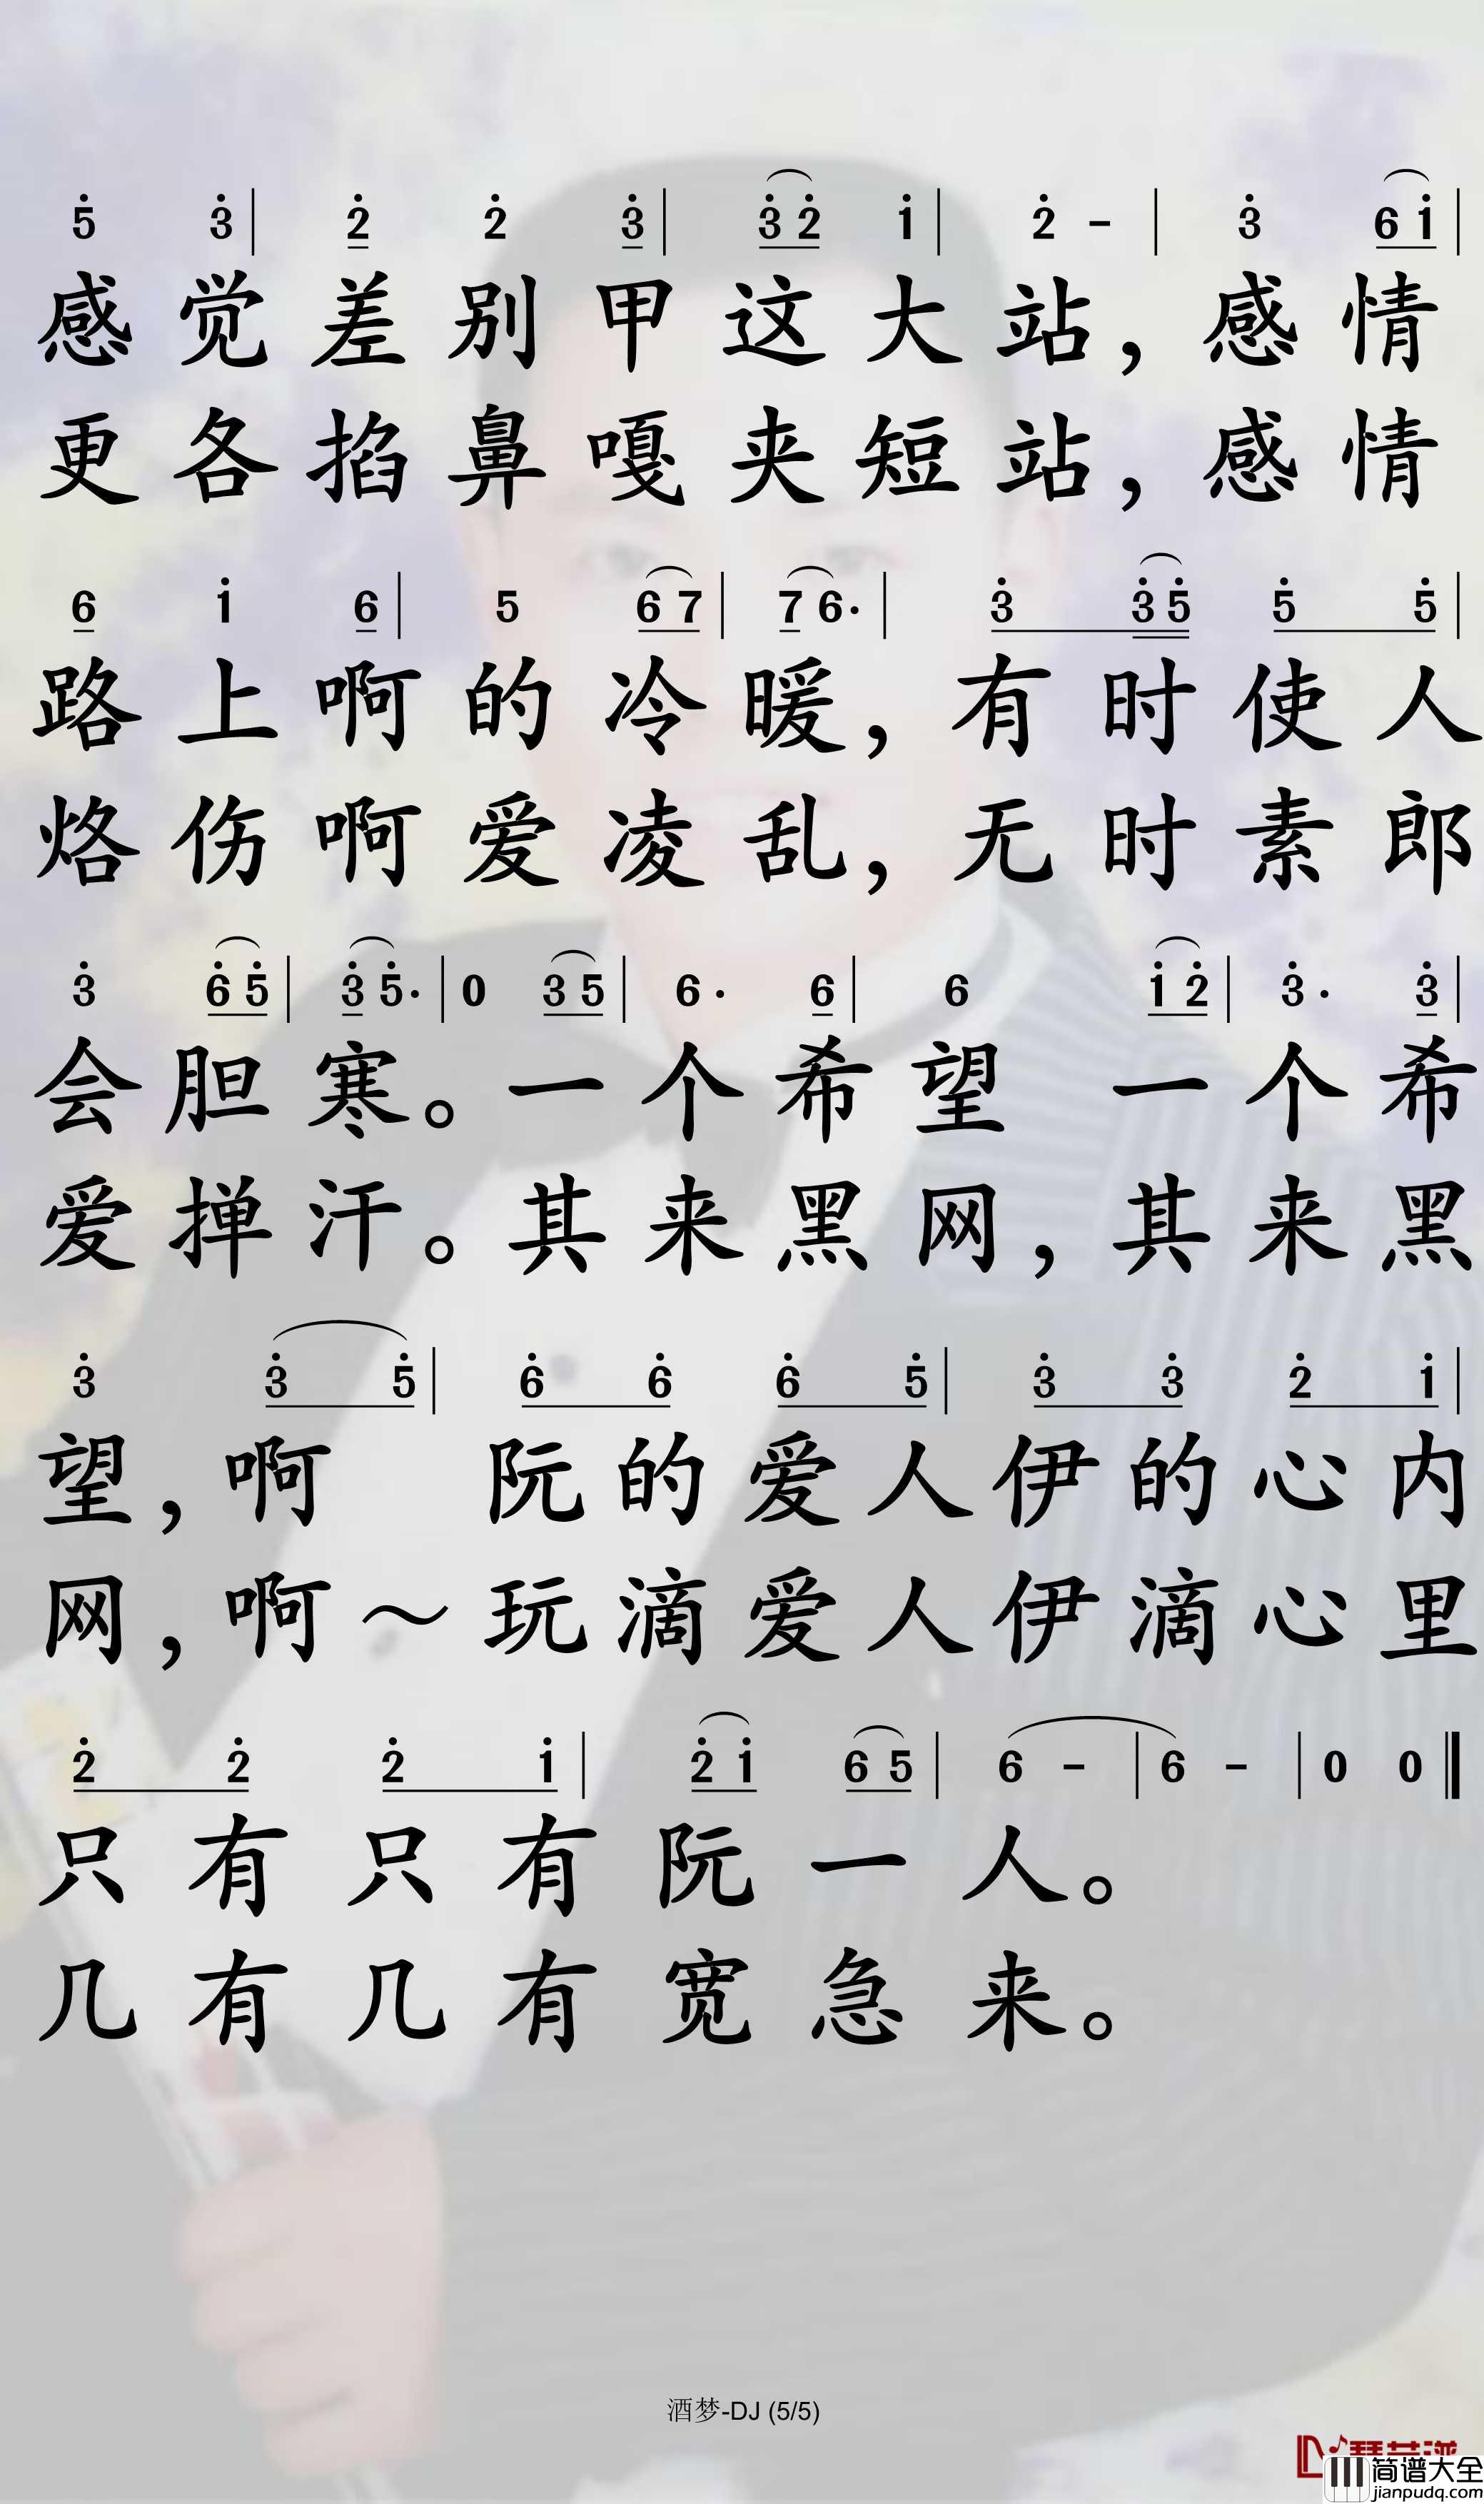 5̇ 3̇ | 2̇ 2̇ 3̇ | 3̇ 2̇ 1̇ | 2̇ - | 3̇ 6 1̇ |
感觉差别甲这大站，感情
更各掐鼻嘎夹短站，感情
6 1̇ 6 | 5 6 7 | 7 6· | 3̇ 3̇ 5̇ 5̇ 5̇ |
路上啊的冷暖，有时使人
烙伤啊爱凌乱，无时素郎
3̇ 6̇ 5̇ | 3̇ 5̇· | 0 3 5 | 6· 6 | 6 1̇ 2̇ | 3̇· 3̇ |
会胆寒。一个希望 一个希
爱掸汗。其来黑网，其来黑
3̇ 3̇ 5̇ | 6̇ 6̇ 6̇ 5̇ | 3̇ 3̇ 2̇ 1̇ |
望，啊 阮的爱人伊的心内
网，啊～玩滴爱人伊滴心里
2̇ 2̇ 2̇ 1̇ | 2̇ 1̇ 6 5 | 6 - | 6 - | 0 0 ‖
只有只有阮一人。
几有几有宽急来。
酒梦-DJ (5/5)
简谱大全
jianpudq.com